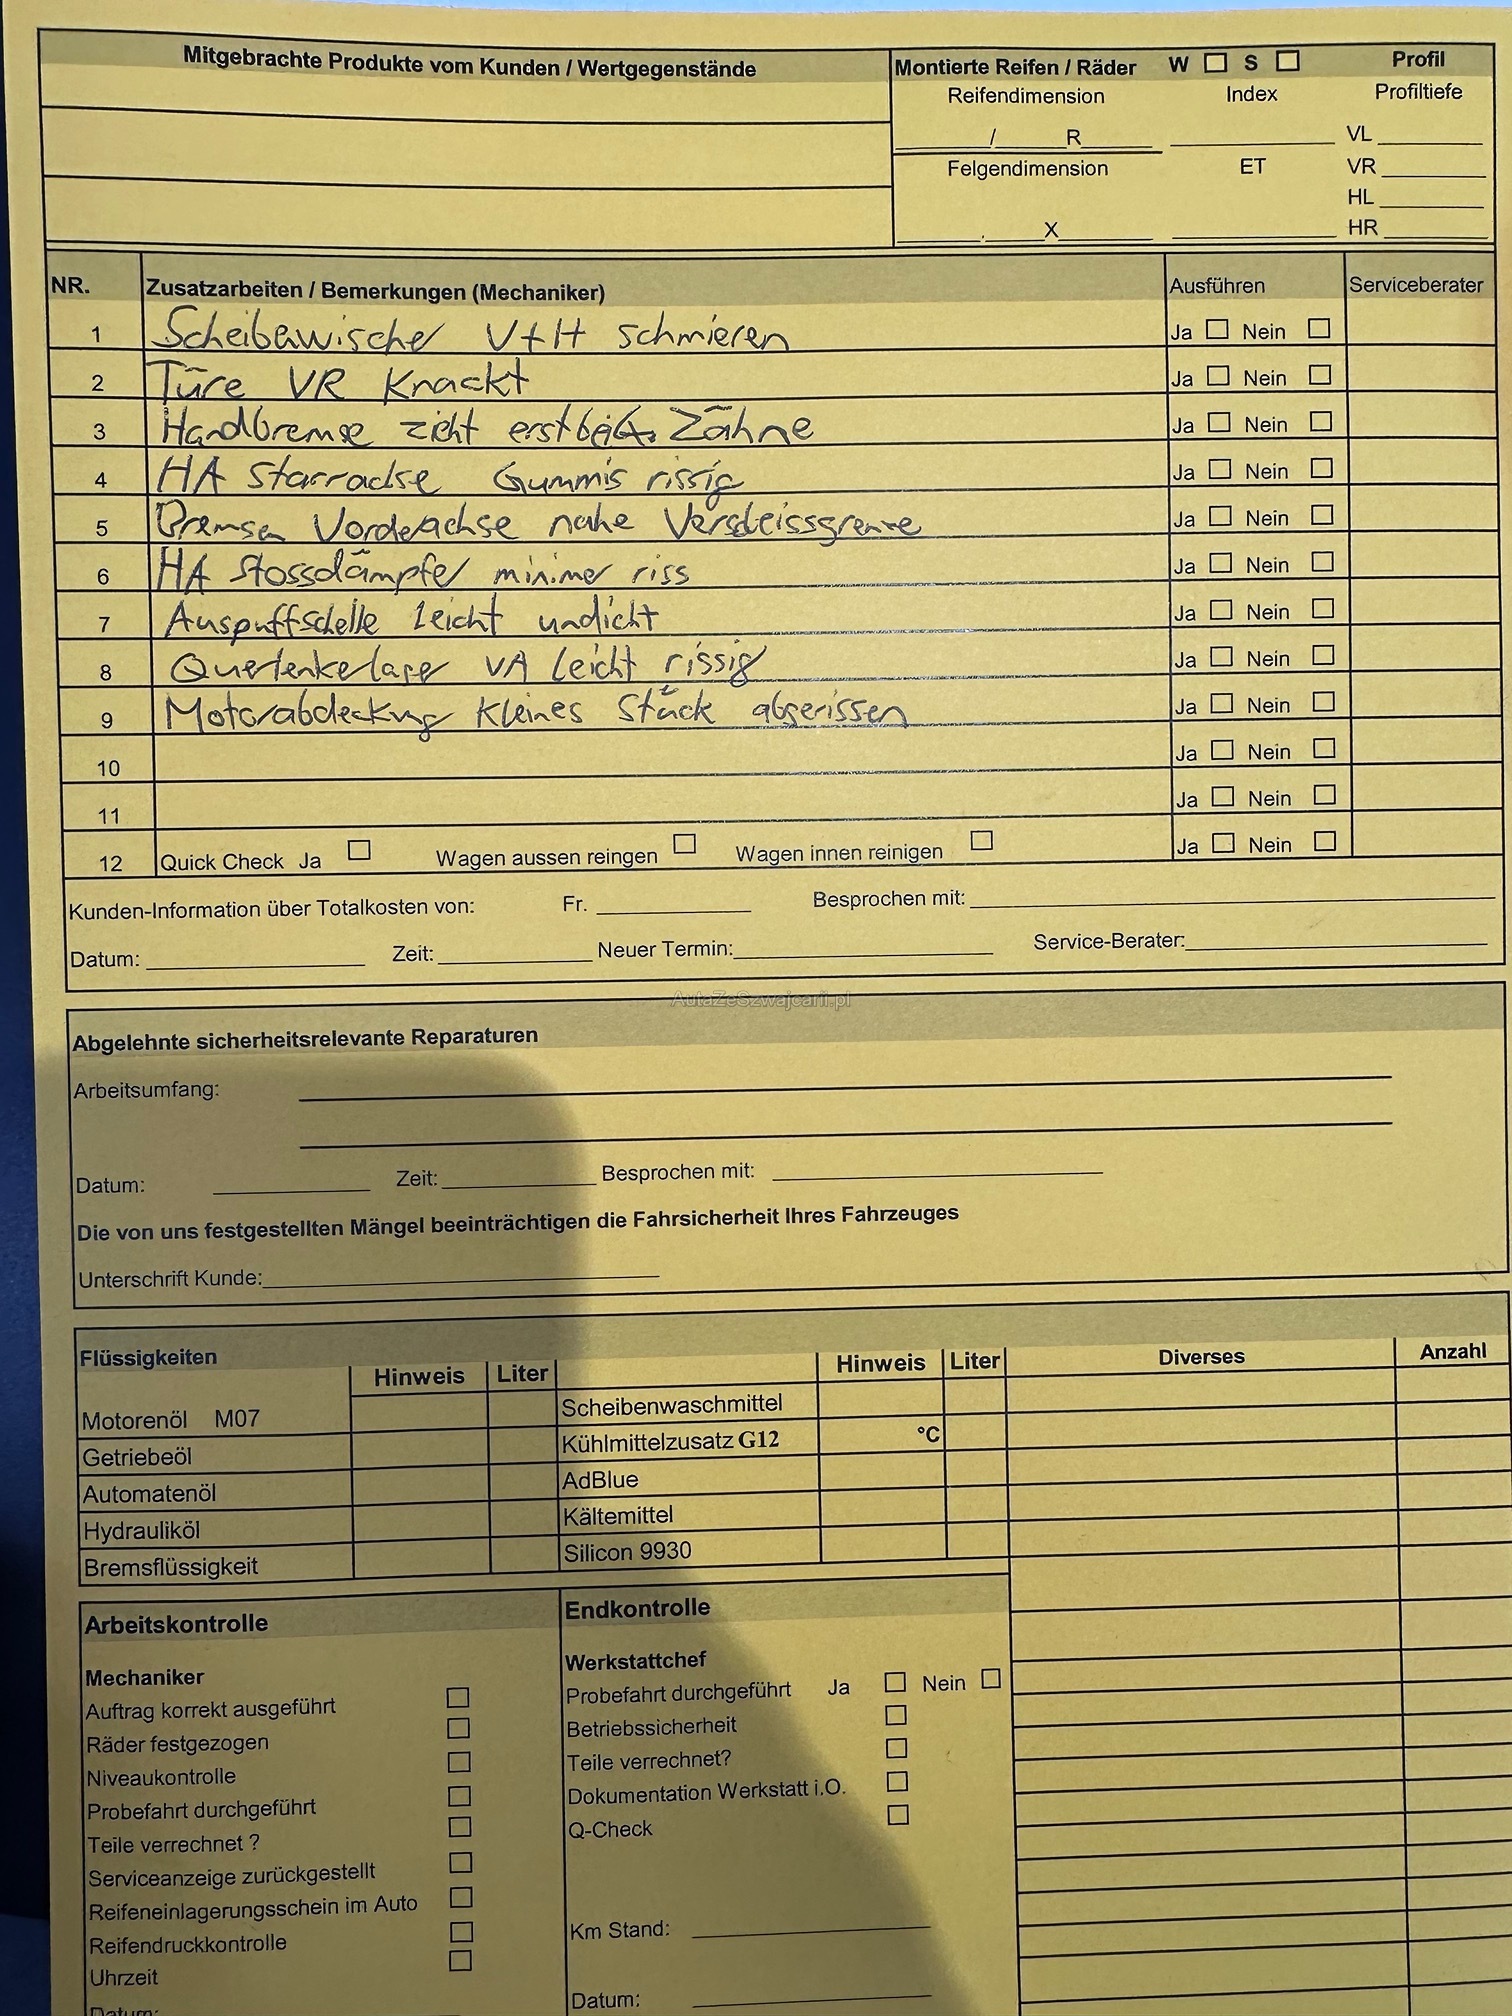 Mitgebrachte Produkte vom Kunden / Wertgegenstände
Montierte Reifen / Räder W ☐ S ☐ Profil
Reifendimension Index Profiltiefe
/ R VL
Felgendimension ET VR
HL
X HR
NR. Zusatzarbeiten / Bemerkungen (Mechaniker) Ausführen Serviceberater
1 Scheibenwischer V+H schmieren Ja ☐ Nein ☐
2 Türe VR Knackt Ja ☐ Nein ☐
3 Handbremse zieht erst Zähne Ja ☐ Nein ☐
4 HA Starrachse Gummis rissig Ja ☐ Nein ☐
5 Bremsen Vorderachse nahe Versbleissgrenze Ja ☐ Nein ☐
6 HA Stossdämpfer minimer riss Ja ☐ Nein ☐
7 Auspuffschelle leicht undicht Ja ☐ Nein ☐
8 Querlenkerlager VA leicht rissig Ja ☐ Nein ☐
9 Motorabdeckung kleines Stück abgerissen Ja ☐ Nein ☐
10 Ja ☐ Nein ☐
11 Ja ☐ Nein ☐
12 Quick Check Ja ☐ Wagen aussen reingen ☐ Wagen innen reinigen ☐ Ja ☐ Nein ☐
Kunden-Information über Totalkosten von: Fr. Besprochen mit:
Datum: Zeit: Neuer Termin: Service-Berater:
AutaZeSzwajcarii.pl
Abgelehnte sicherheitsrelevante Reparaturen
Arbeitsumfang:
Datum: Zeit: Besprochen mit:
Die von uns festgestellten Mängel beeinträchtigen die Fahrsicherheit Ihres Fahrzeuges
Unterschrift Kunde:
Flüssigkeiten Hinweis Liter Hinweis Liter Diverses Anzahl
Motorenöl M07 Scheibenwaschmittel
Getriebeöl Kühlmittelzusatz G12 °C
Automatenöl AdBlue
Hydrauliköl Kältemittel
Bremsflüssigkeit Silicon 9930
Arbeitskontrolle Endkontrolle
Mechaniker Werkstattchef
Auftrag korrekt ausgeführt ☐ Probefahrt durchgeführt Ja ☐ Nein ☐
Räder festgezogen ☐ Betriebssicherheit ☐
Niveaukontrolle ☐ Teile verrechnet? ☐
Probefahrt durchgeführt ☐ Dokumentation Werkstatt i.O. ☐
Teile verrechnet ? ☐ Q-Check ☐
Serviceanzeige zurückgestellt ☐
Reifeneinlagerungsschein im Auto ☐
Reifendruckkontrolle ☐ Km Stand:
Uhrzeit ☐
Datum: Datum: